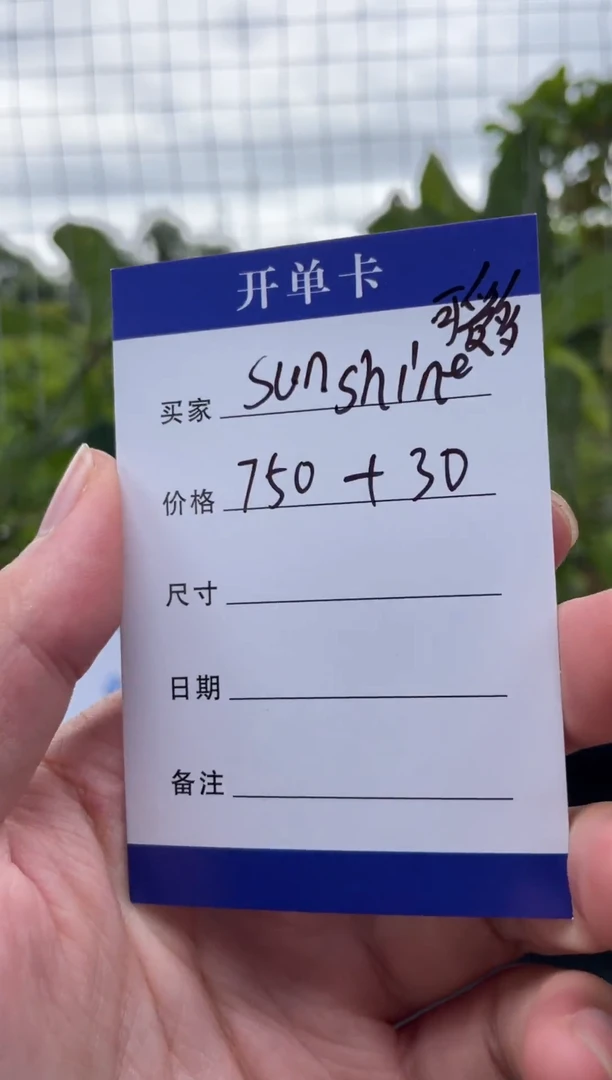 开单卡
买家 sunshine
价格 750 + 30
尺寸
日期
备注